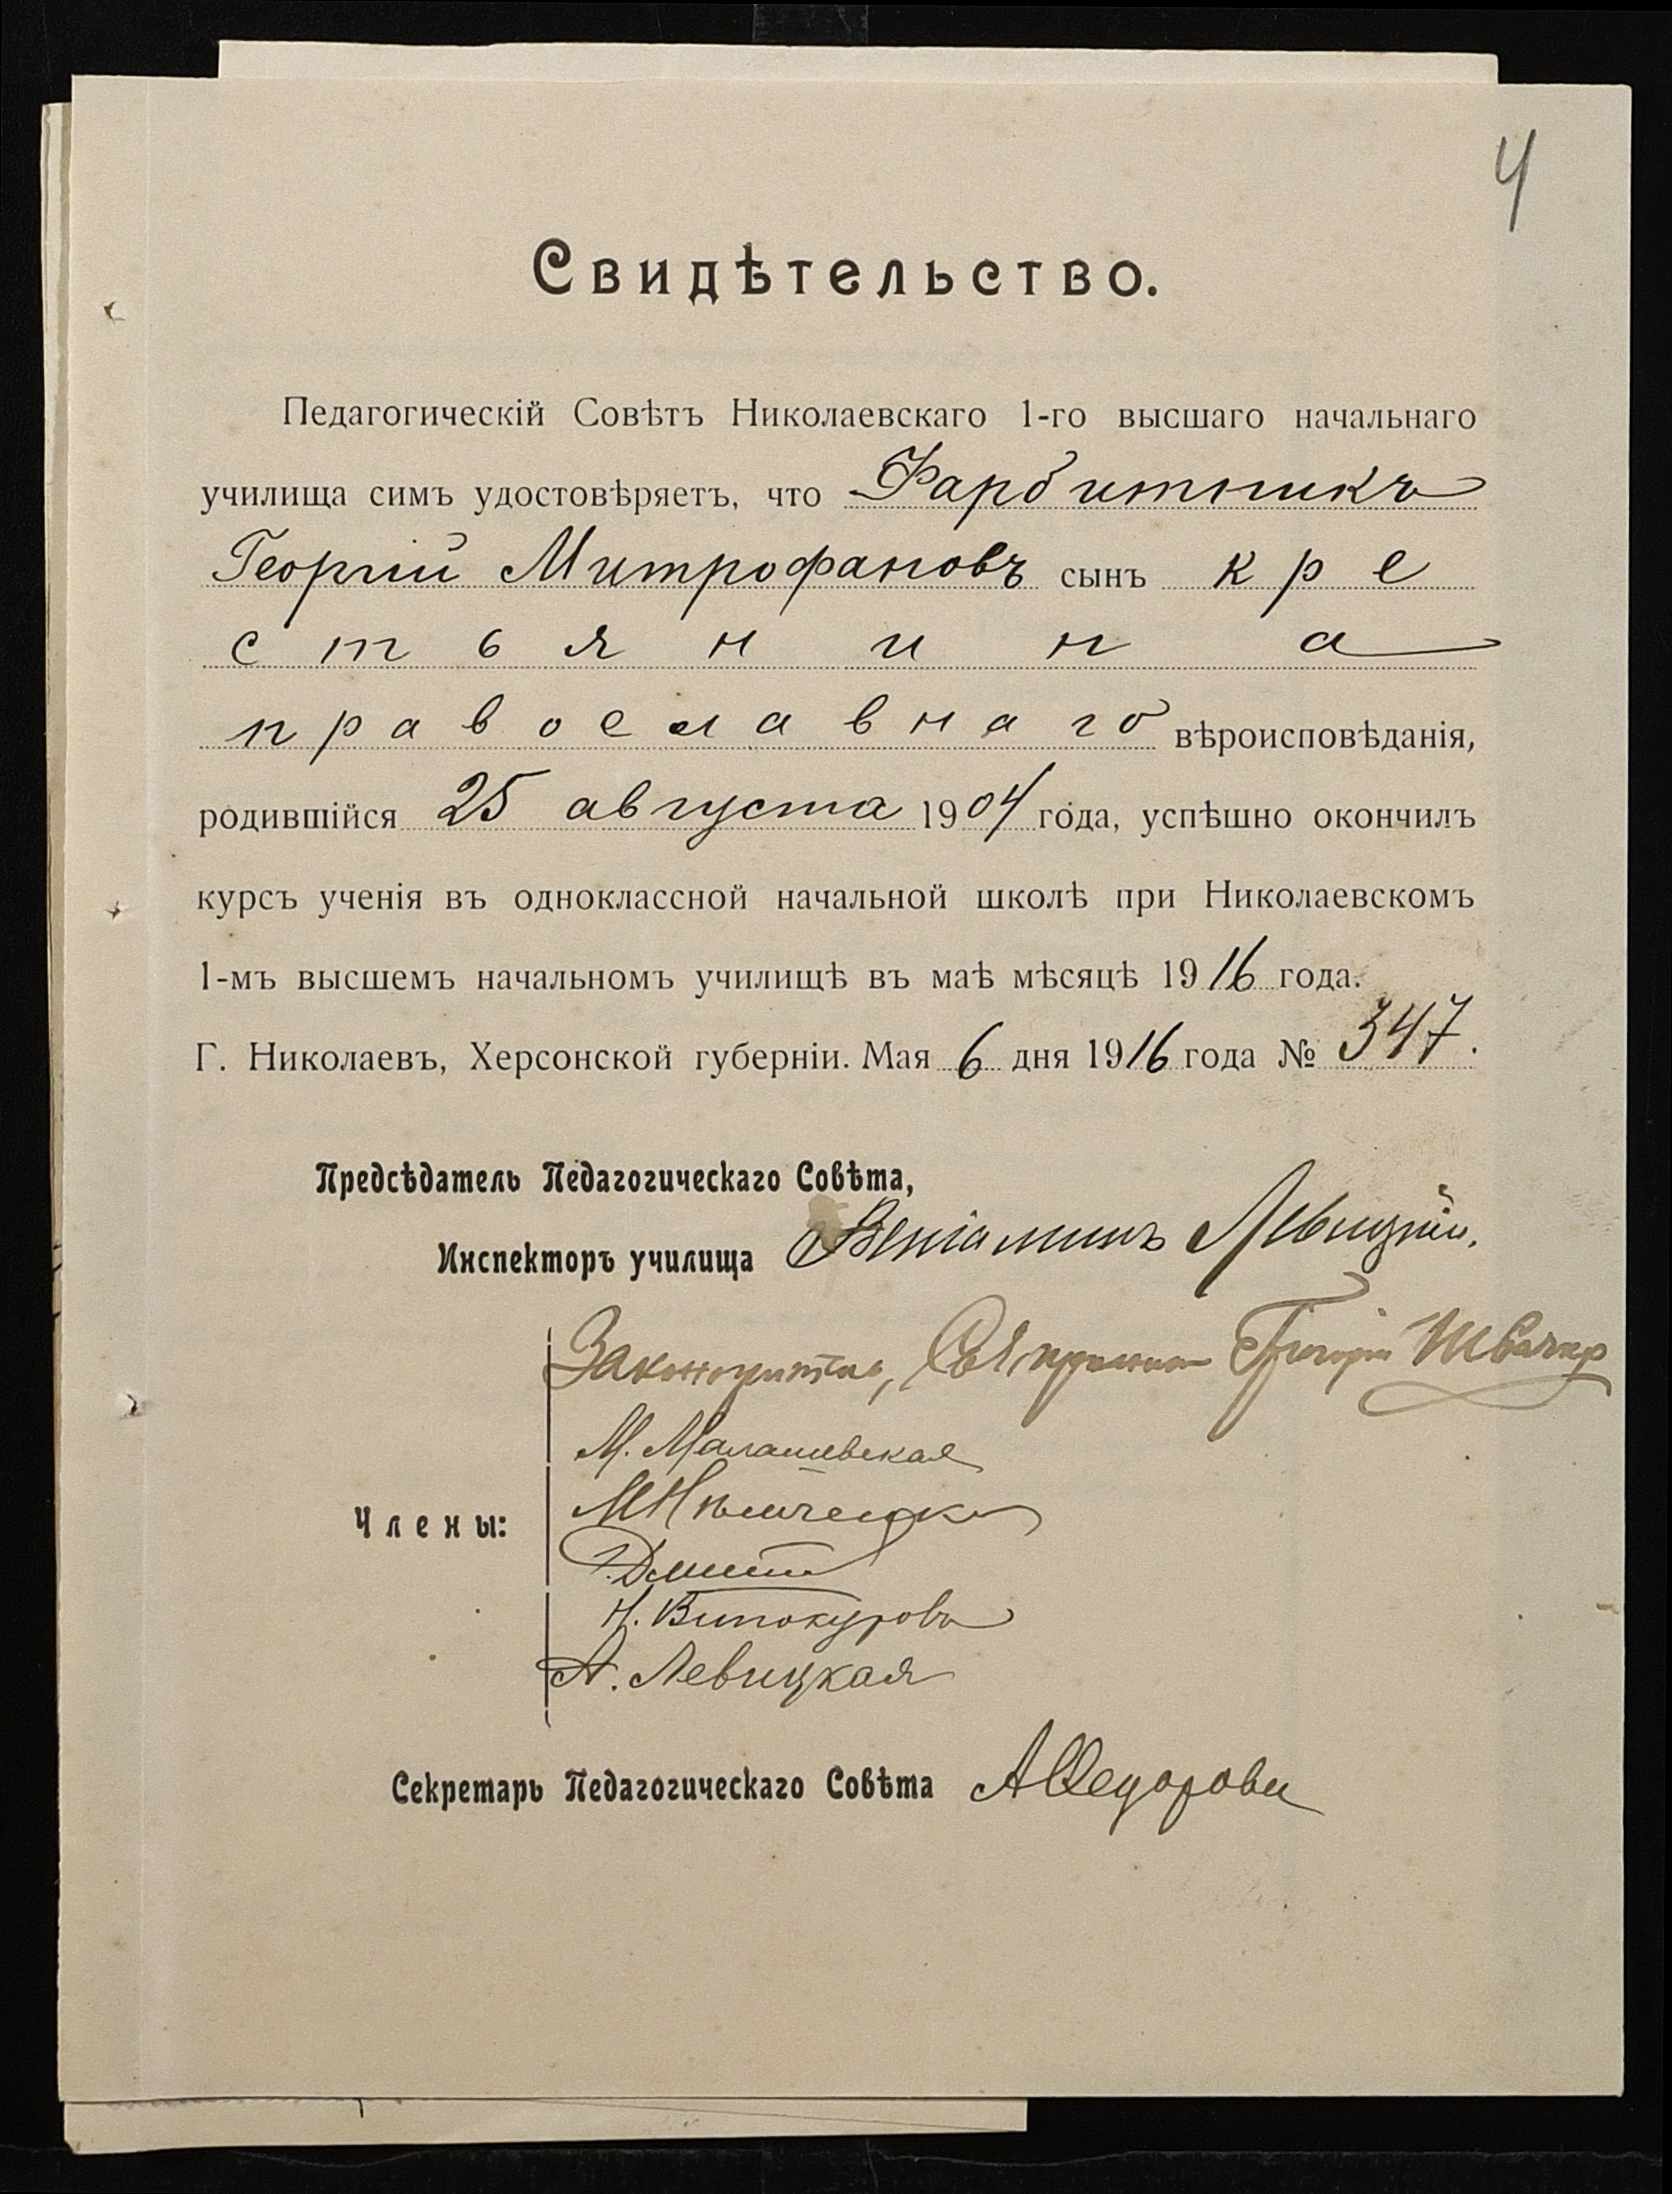 4
Свидѣтельство.
Педагогическій Совѣтъ Николаевскаго 1-го высшаго начальнаго
училища симъ удостовѣряетъ, что Фарбитникъ
Георгій Митрофановъ сынъ кре
стьянина
православнаго вѣроисповѣданія,
родившійся 25 августа 1904 года, успѣшно окончилъ
курсъ ученія въ одноклассной начальной школѣ при Николаевскомъ
1-мъ высшемъ начальномъ училищѣ въ маѣ мѣсяцѣ 1916 года.
Г. Николаевъ, Херсонской губерніи. Мая 6 дня 1916 года № 347.
Предсѣдатель Педагогическаго Совѣта,
Инспекторъ училища Веніаминъ Левицкій.
Законоучитель, Григорій
М. Малашевская
Члены:
Н. Винокурова
А. Левицкая
Секретарь Педагогическаго Совѣта